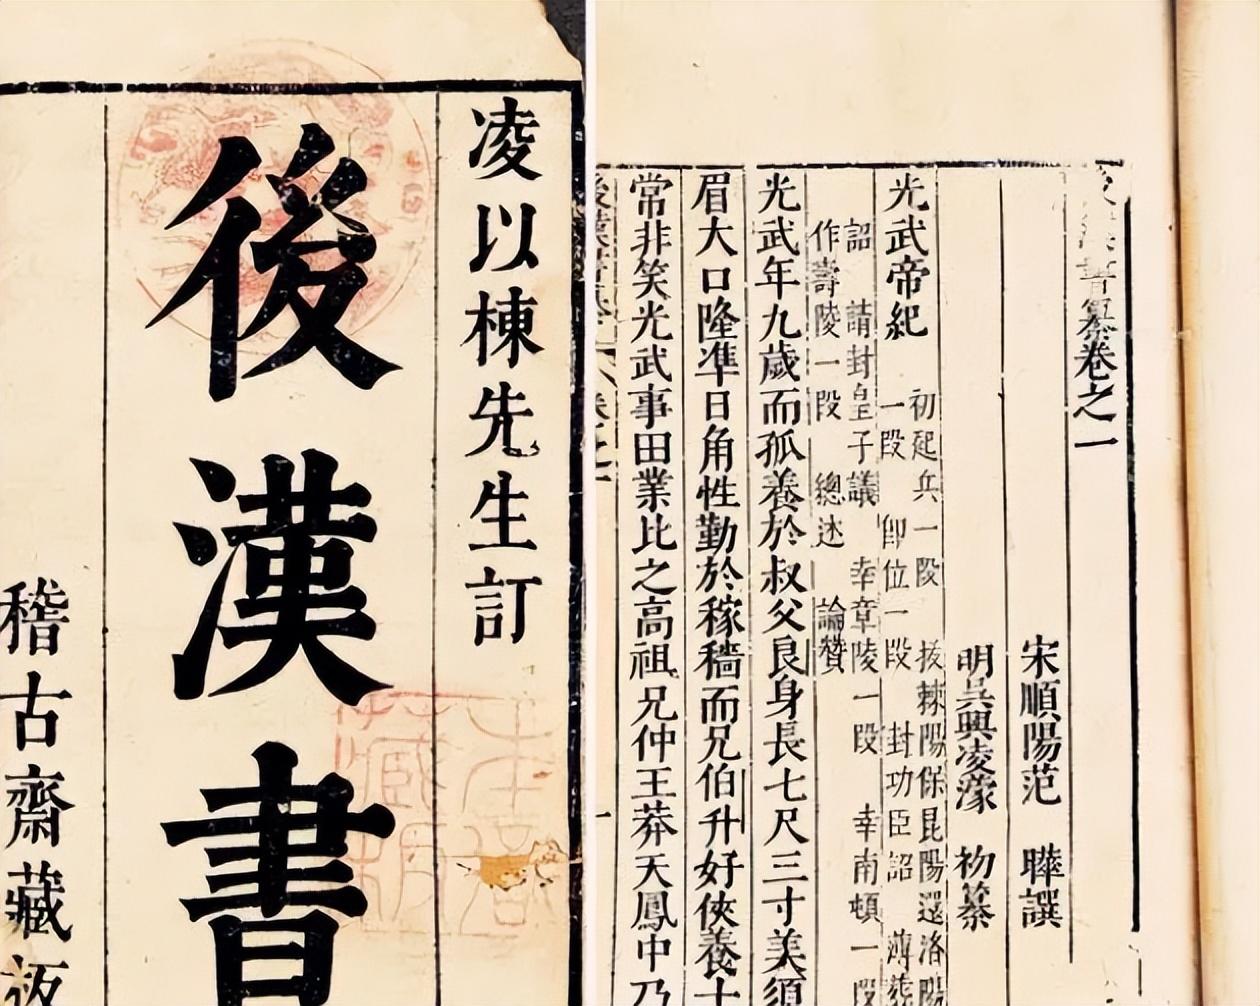 凌以棟先生訂
後漢書
稽古齋藏板
書纂卷之一
宋順陽范　曄譔
明吳興凌濛　初纂
光武帝紀
初起兵一段　拔棘陽保昆陽還洛陽
一段　卽位一段　封功臣詔　薄葬
詔　請封皇子議　幸章陵一段　幸南頓一段
作壽陵一段　總述　論贊
光武年九歲而孤養於叔父良身長七尺三寸美須
眉大口隆準日角性勤於稼穡而兄伯升好俠養士
常非笑光武事田業比之高祖兄仲王莽天鳳中乃